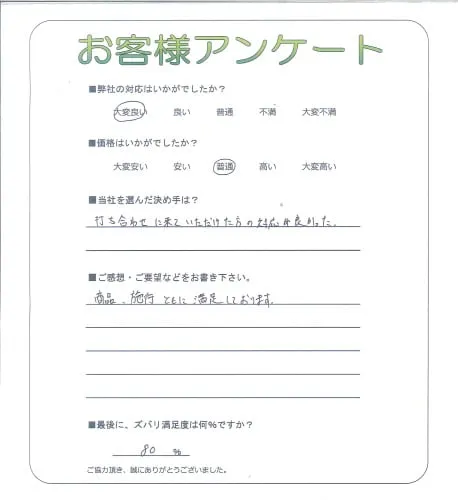 お客様アンケート
■弊社の対応はいかがでしたか？
大変良い 良い 普通 不満 大変不満
■価格はいかがでしたか？
大変安い 安い 普通 高い 大変高い
■当社を選んだ決め手は？
打ち合わせに来ていただけた方の対応が良かった。
■ご感想・ご要望などをお書き下さい。
商品、施行ともに満足しております。
■最後に、ズバリ満足度は何％ですか？
80 %
ご協力頂き、誠にありがとうございました。